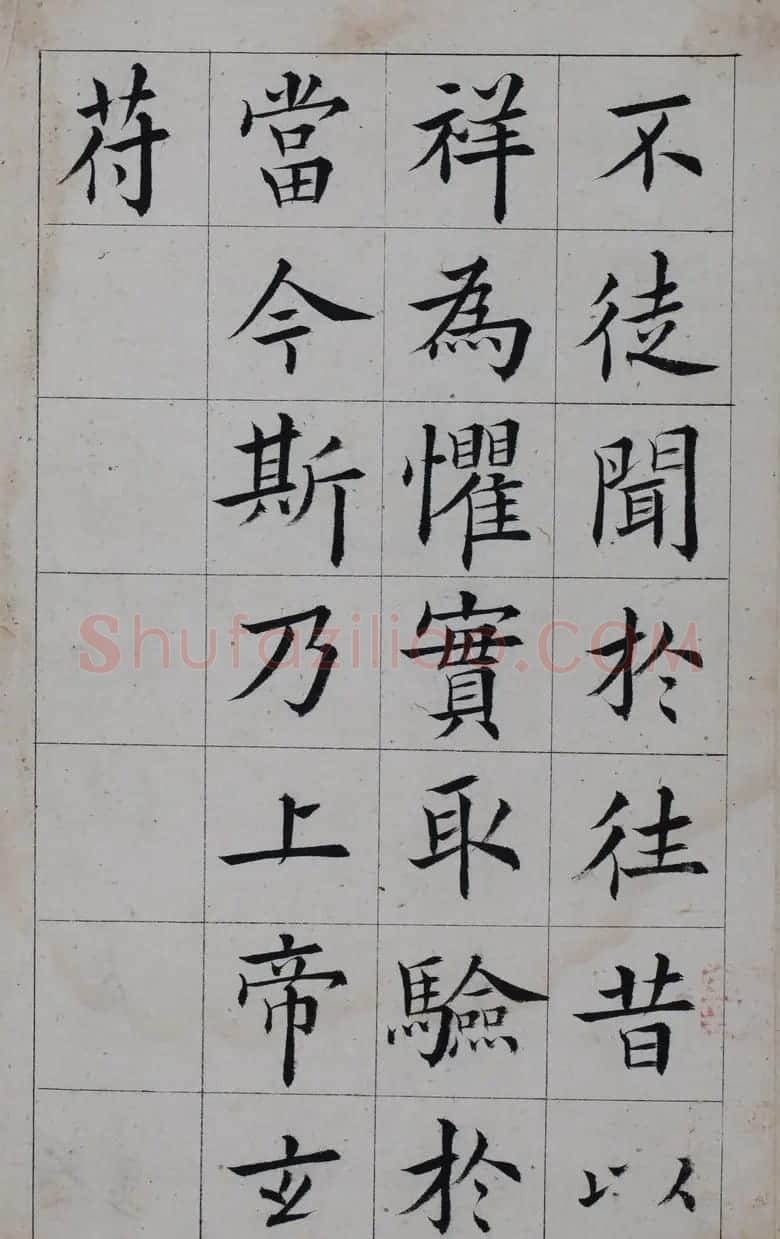 不徒聞於往昔以
祥為懼實取驗於
當今斯乃上帝玄
苻
Shufaziliao.COM